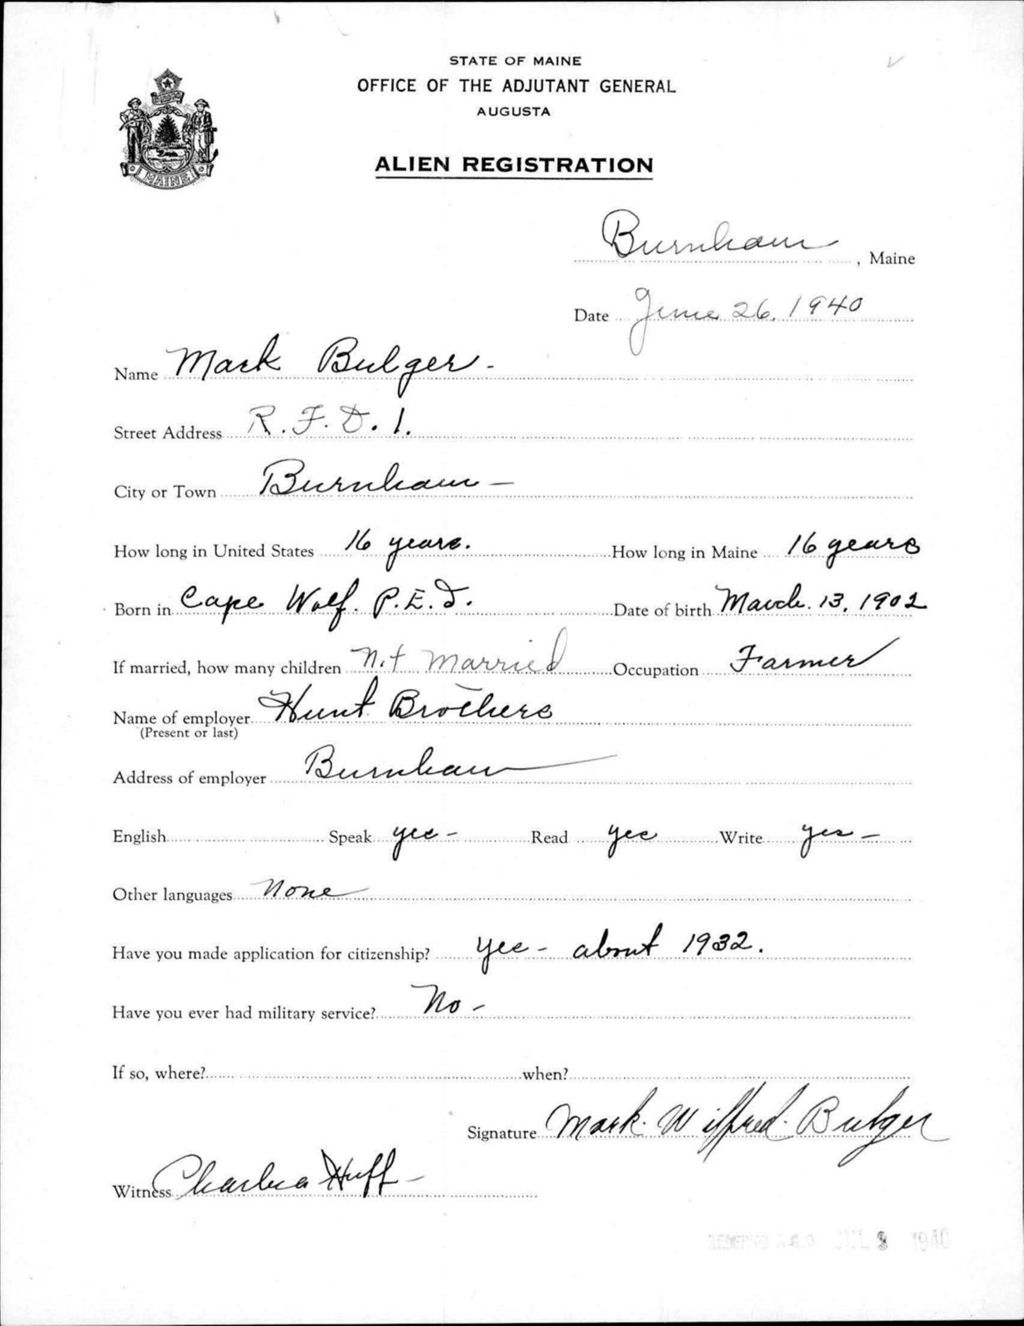 STATE OF MAINE
OFFICE OF THE ADJUTANT GENERAL
AUGUSTA
ALIEN REGISTRATION
MAINE
Burnham, Maine
Date June 26, 1940
Name Mark Bulger -
Street Address R.F.D. 1.
City or Town Burnham -
How long in United States 16 years. How long in Maine 16 years
Born in Cape Wolf. P.E.I. Date of birth March. 13, 1902
If married, how many children Not Married Occupation Farmer
Name of employer Hunt Brothers
(Present or last)
Address of employer Burnham
English Speak yes - Read yes Write yes -
Other languages None
Have you made application for citizenship? yes - about 1932.
Have you ever had military service? No -
If so, where? when?
Signature Mark. Wilfred. Bulger
Witness Charles Huff -
1940